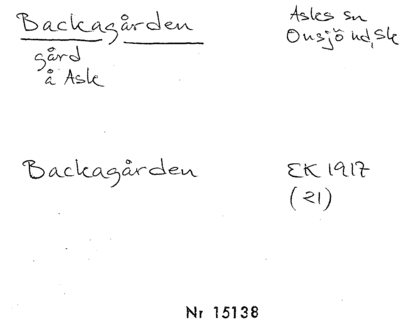 Backagården
gård
å Ask
Asks sn
Onsjö hd, Sk
Backagården
EK 1917
(21)
Nr 15138